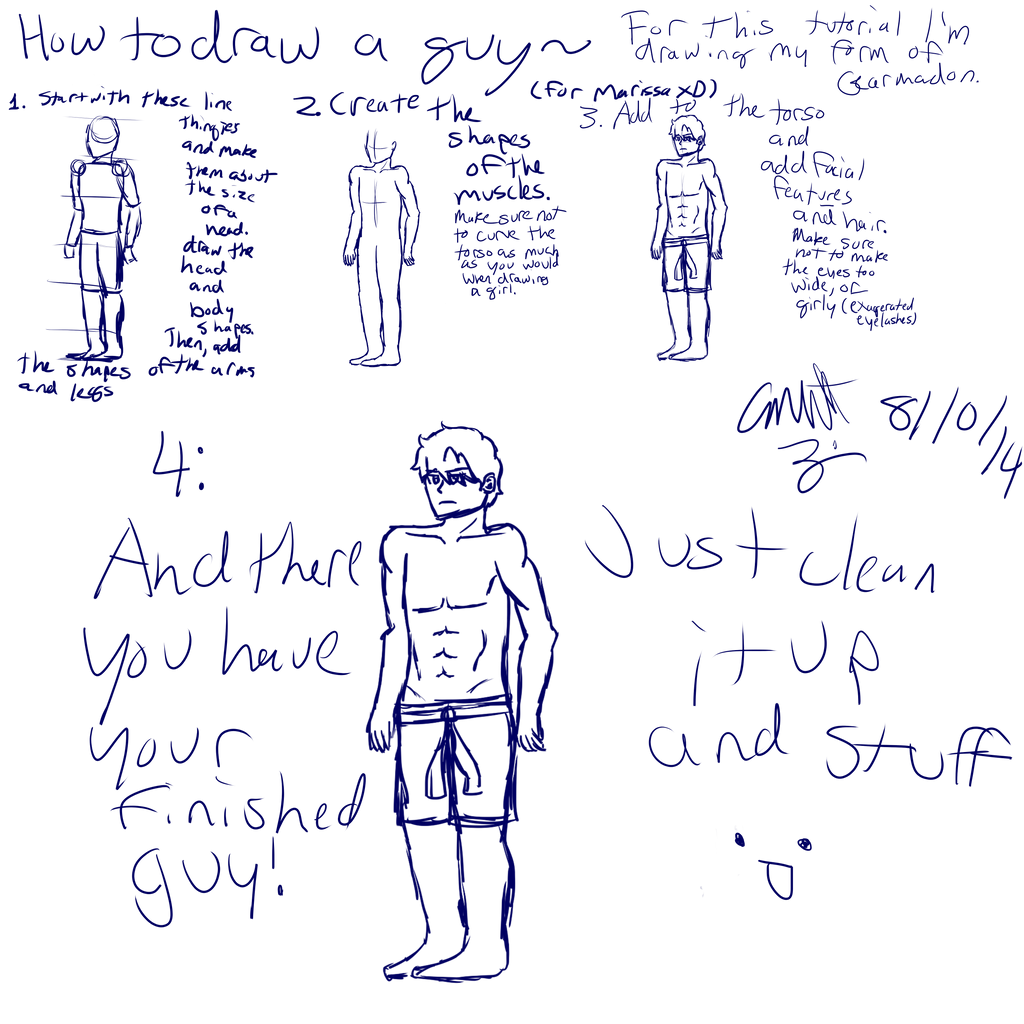 How to draw a guy~
For this tutorial I'm
drawing my form of
Garmadon.
(for Marissa xD)
1. Start with these line
thingies
and make
them about
the size
of a
head.
draw the
head
and
body
shapes.
Then, add
the shapes of the arms
and legs
2. Create the
shapes
of the
muscles.
Make sure not
to curve the
torso as much
as you would
when drawing
a girl.
3. Add to the torso
and
add facial
features
and hair.
Make sure
not to make
the eyes too
wide, or
girly (exagerated
eyelashes)
8/10/14
4:
And there
you have
your
finished
guy!
Just clean
it up
and stuff